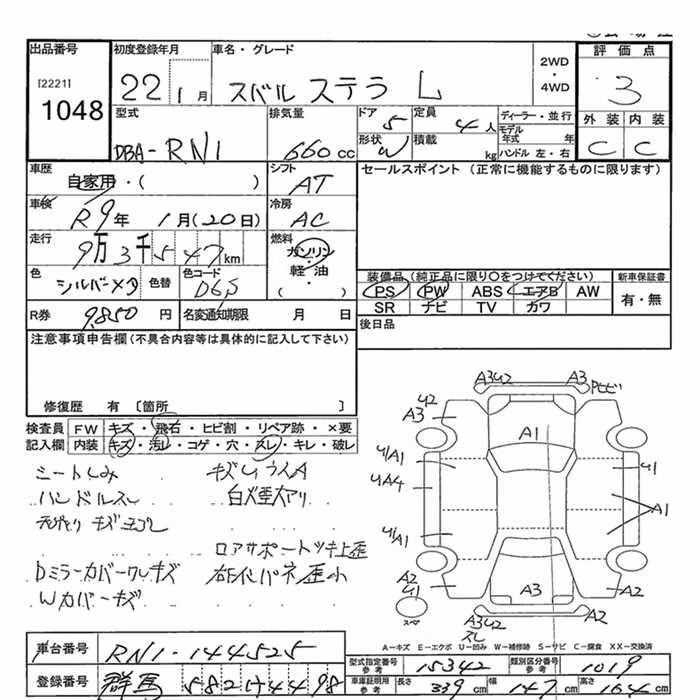 出品番号 初度登録年月 車名・グレード 評価点
[2221] 22 1月 スバル ステラ L 2WD・4WD 3
1048
型式 排気量 ドア 定員 ディーラー・並行 外装 内装
DBA-RN1 660cc 5 4人 モデル年式 年 C C
形状 W 積載 kg ハンドル 左・右
車歴 シフト セールスポイント (正常に機能するものに限ります)
自家用・( ) AT
車検 冷房
R9年 1月(20日) AC
走行 燃料
9万3千547km ガソリン・軽油・( )
色 色替 色コード 装備品(純正品に限り○をつけてください) 新車保証書
シルバーメタ D6S PS PW ABS エアB AW 有・無
SR ナビ TV カワ
R券 9,850円 名変通知期限 月 日 後日品
注意事項申告欄(不具合内容等は具体的に記入して下さい)
修復歴 有 [箇所 ]
検査員 FW キズ・飛石・ヒビ割・リペア跡・×要
記入欄 内装 キズ・汚レ・コゲ・穴・スレ・キレ・破レ
シートしみ
ハンドルスレ
ロアサポートツキ上歪
Dミラーカバーワレキズ
Wカバーキズ
A3U2 A3
U2
A3
A1
U1A1 U1
UA4
A1
U1A1
A2
U1
A3 A2
スペア
A3U2 A2
スレ
A─キズ E─エクボ U─凹み W─補修跡 S─サビ C─腐食 XX─交換済
車台番号 RN1-144525 型式指定番号 参考 15342 類別区分番号 参考 1019
登録番号 群馬 582 4498 車庫証明用 参考 長さ 339cm 幅 147cm 高さ 164cm